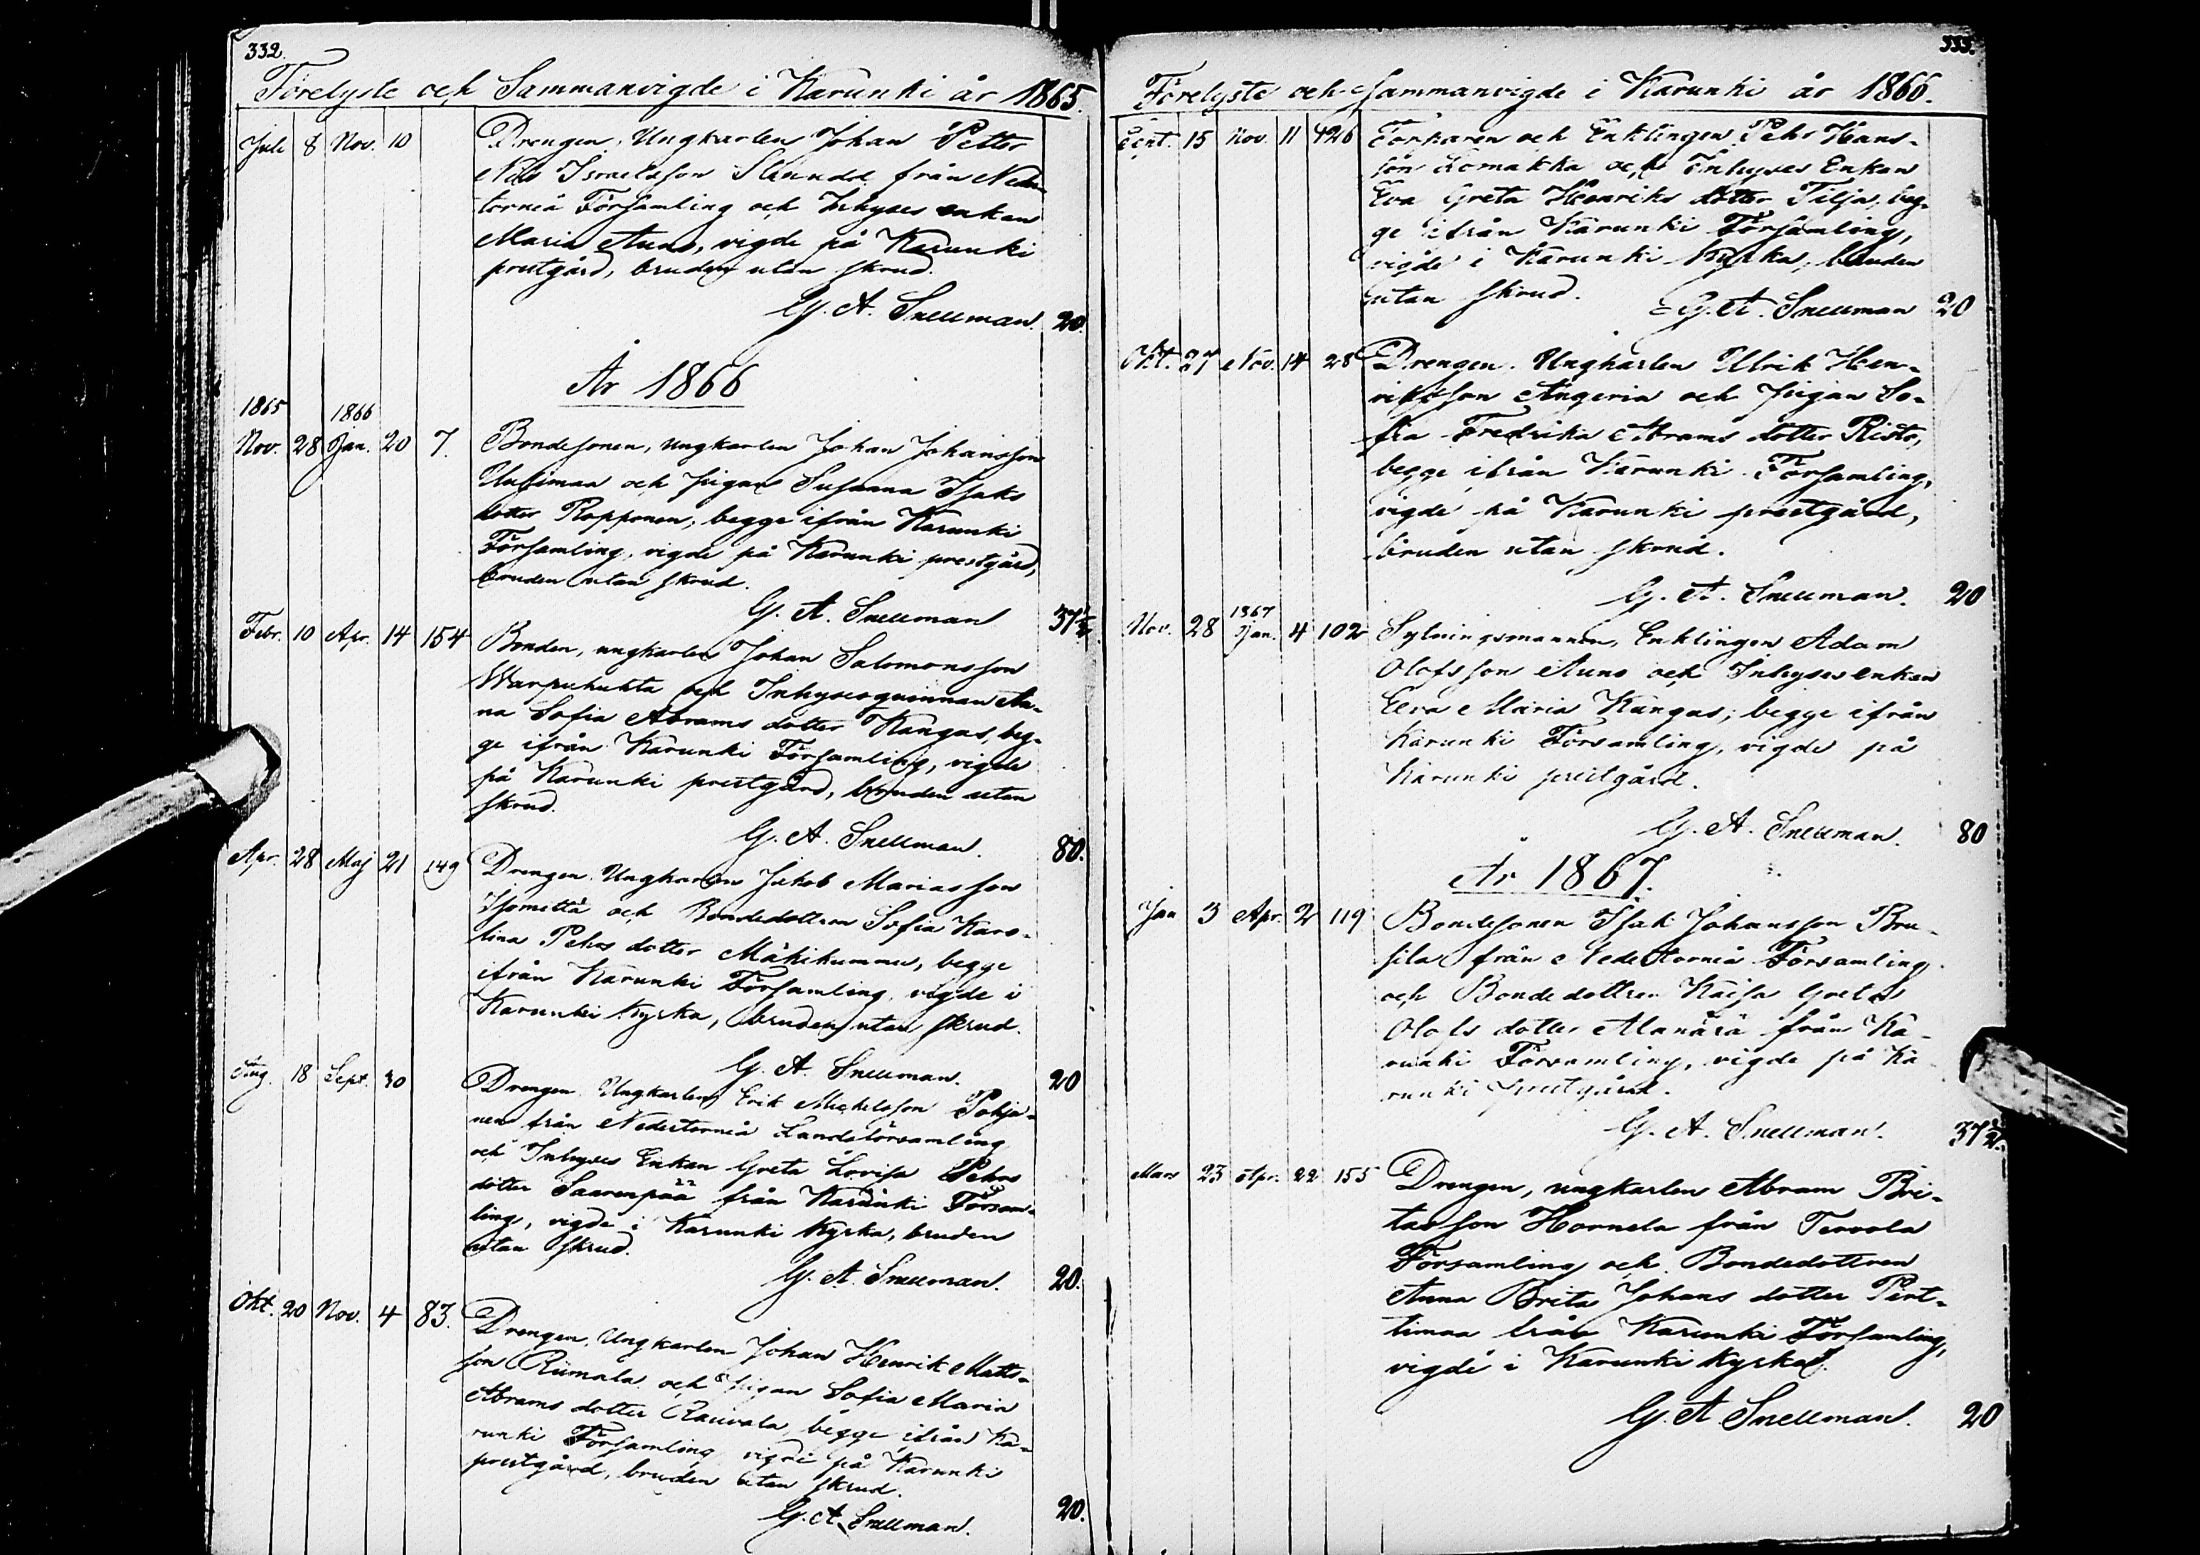 332.
Förelyste och Sammanvigde i Karunki år 1865.
Juli 8 Nov. 10 Drengen, Ungkarlen Johan Petter
Nils Israelsson från Neder-
torneå Församling och Inhyses enkan
Maria Auno, vigde på Karunki
prestgård, bruden utan skrud.
G. A. Snellman. 20.
År 1866
1865 1866
Nov. 28 Jan. 20 7. Bondesonen, ungkarlen Johan Johansson
Uusimaa och pigan Susanna Isaks
dotter Ropponen, begge ifrån Karunki
Församling, vigde på Karunki prestgård,
bruden utan skrud.
G. A. Snellman 37½
Febr. 10 Apr. 14 154 Bonden, ungkarlen Johan Salomonsson
Warpuhuhta och Inhysesqvinnan An-
na Sofia Abrams dotter Kangas, beg-
ge ifrån Karunki Församling, vigde
på Karunki prestgård, bruden utan
skrud.
G. A. Snellman. 80.
Apr. 28 Maj 21 149 Drengen, Ungkarlen Jakob Mariasson
Isomettä och Bondedottren Sofia Karo-
lina Pehrs dotter Mäkikummu, begge
ifrån Karunki Församling, vigde i
Karunki Kyrka, bruden utan skrud.
G. A. Snellman. 20
Aug. 18 Sept. 30 Drengen, Ungkarlen Erik Michelsson Pohja-
nen från Nedertorneå Landsförsamling
och Inhyses Enkan Greta Lovisa Pehrs
dotter Saarenpää från Karunki Försam-
ling, vigde i Karunki Kyrka, bruden
utan skrud.
G. A. Snellman. 20.
Okt. 20 Nov. 4 83. Drengen, Ungkarlen Johan Henrik Matts-
son Rümala och pigan Sofia Maria
Abrams dotter Rauvala, begge ifrån Ka-
runki Församling, vigde på Karunki
prestgård, bruden utan skrud.
G. A. Snellman. 20.
333.
Förelyste och Sammanvigde i Karunki år 1866.
Sept. 15 Nov. 11 126 Torparen och Enklingen Pehr Hans-
son Lomakka och Inhyses Enkan
Eva Greta Henriks dotter Tilja, beg-
ge ifrån Karunki Församling,
vigde i Karunki Kyrka, bruden
utan skrud.
G. A. Snellman 20
Okt. 27 Nov. 14 28 Drengen, Ungkarlen Ulrik Hen-
riksson Angeria och pigan So-
fia Fredrika Abrams dotter Risto,
begge ifrån Karunki Församling,
vigde på Karunki prestgård,
bruden utan skrud.
G. A. Snellman. 20
1867
Nov. 28 Jan. 4 102 Sytningsmannen, Enklingen Adam
Olofsson Auno och Inhyses enkan
Eva Maria Kangas, begge ifrån
Karunki Församling, vigde på
Karunki prestgård.
G. A. Snellman. 80
År 1867.
Jan 3 Apr. 2 119 Bondesonen Isak Johansson Bru-
sila från Nedertorneå Församling
och Bondedottren Kaisa Greta
Olofs dotter Alanärä från Ka-
runki Församling, vigde på Ka
runki prestgård.
G. A. Snellman. 37½.
Mars 23 Apr. 22 155 Drengen, ungkarlen Abram Bri-
tasson Hornela från Tervola
Församling och Bondedottren
Anna Brita Johans dotter Pirt-
timaa från Karunki Församling,
vigde i Karunki Kyrka.
G. A Snellman. 20